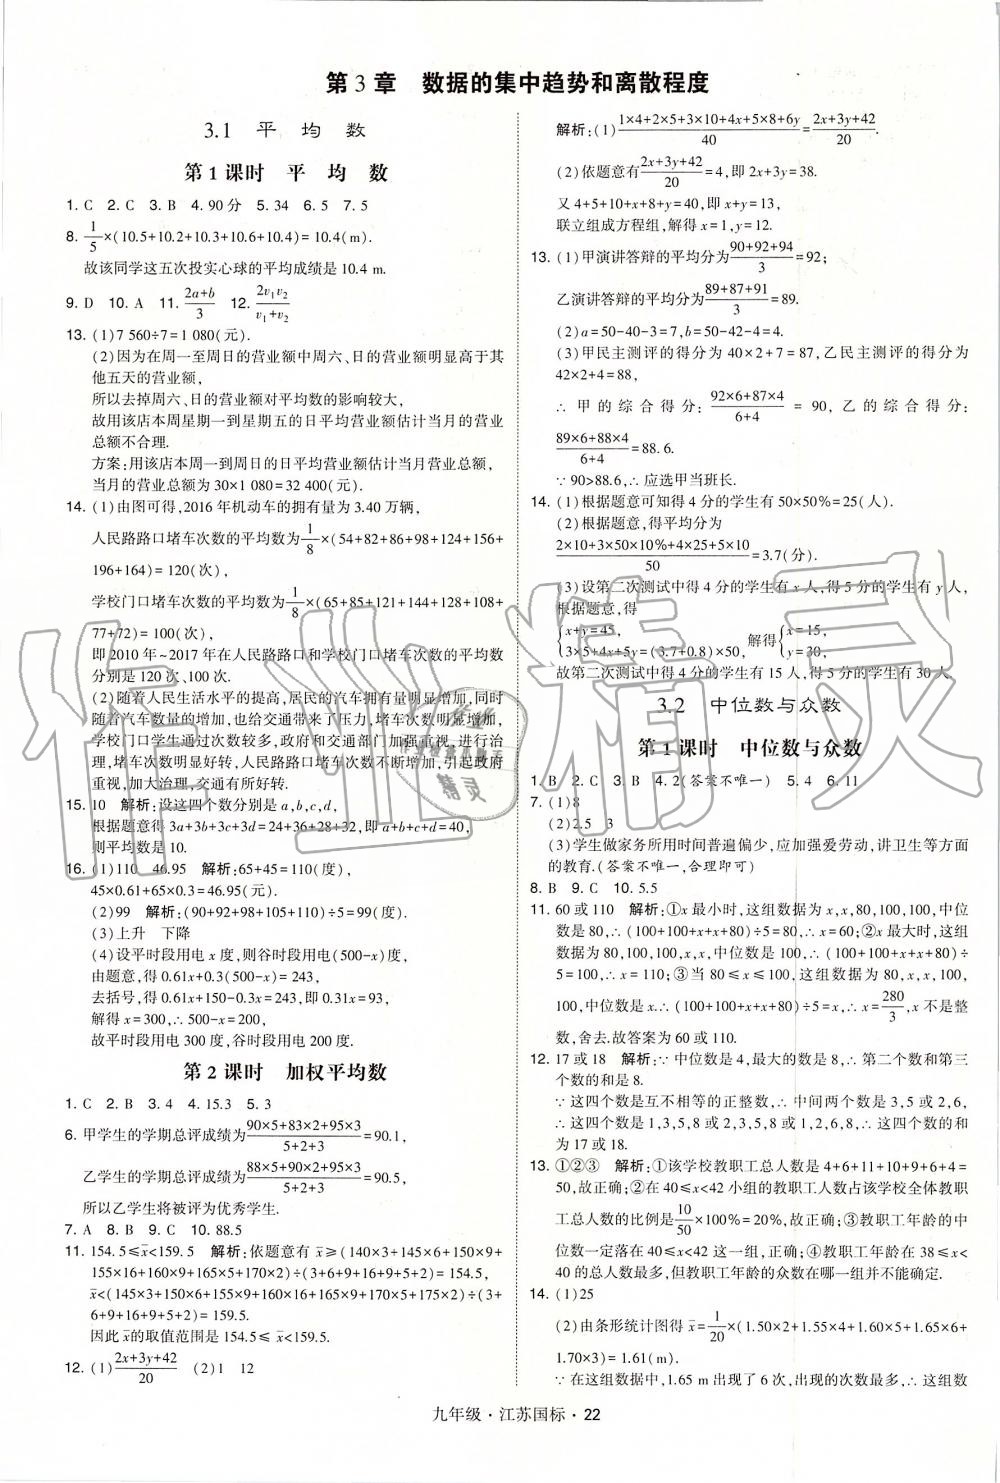 第3章　数据的集中趋势和离散程度
3.1　平　均　数
第1课时　平　均　数
1. C　2. C　3. B　4. 90分　5. 34　6. 5　7. 5
8. 1/5×(10.5+10.2+10.3+10.6+10.4)=10.4(m).
故该同学这五次投实心球的平均成绩是10.4 m.
9. D　10. A　11. (2a+b)/3　12. 2v₁v₂/(v₁+v₂)
13. (1)7 560÷7=1 080(元).
(2)因为在周一至周日的营业额中周六、日的营业额明显高于其
他五天的营业额,
所以去掉周六、日的营业额对平均数的影响较大,
故用该店本周星期一到星期五的日平均营业额估计当月的营业
总额不合理.
方案:用该店本周一到周日的日平均营业额估计当月营业总额,
当月的营业总额为30×1 080=32 400(元).
14. (1)由图可得,2016年机动车的拥有量为3.40万辆,
人民路路口堵车次数的平均数为1/8×(54+82+86+98+124+156+
196+164)=120(次),
学校门口堵车次数的平均数为1/8×(65+85+121+144+128+108+
77+72)=100(次),
即2010年~2017年在人民路路口和学校门口堵车次数的平均数
分别是120次、100次.
(2)随着人民生活水平的提高,居民的汽车拥有量明显增加,同时
随着汽车数量的增加,也给交通带来了压力,堵车次数明显增加,
学校门口学生通过次数较多,政府和交通部门加强重视,进行有
效治理,堵车次数明显好转,人民路路口堵车次数不断增加,引起政府
重视,加大治理,交通有所好转.
15. 10　解析:设这四个数分别是a,b,c,d,
根据题意得3a+3b+3c+3d=24+36+28+32,即a+b+c+d=40,
则平均数是10.
16. (1)110　46.95　解析:65+45=110(度),
45×0.61+65×0.3=46.95(元).
(2)99　解析:(90+92+98+105+110)÷5=99(度).
(3)上升　下降
(4)设平时段用电x度,则谷时段用电(500-x)度.
由题意,得0.61x+0.3(500-x)=243,
去括号,得0.61x+150-0.3x=243,即0.31x=93,
解得x=300,∴500-x=200,
故平时段用电300度,谷时段用电200度.
第2课时　加权平均数
1. C　2. B　3. 4　4. 15.3　5. 3
6. 甲学生的学期总评成绩为(90×5+83×2+95×3)/(5+2+3)=90.1,
乙学生的学期总评成绩为(88×5+90×2+95×3)/(5+2+3)=90.5,
所以乙学生将被评为优秀学生.
7. A　8. B　9. C　10. 88.5
11. 154.5≤x̄<159.5　解析:依题意有x̄≥(140×3+145×6+150×9+
155×16+160×9+165×5+170×2)÷(3+6+9+16+9+5+2)=154.5,
x̄<(145×3+150×6+155×9+160×16+165×9+170×5+175×2)÷(3+
6+9+16+9+5+2)=159.5.
因此x̄的取值范围是154.5≤x̄<159.5.
12. (1)(2x+3y+42)/20　(2)1　12
解析:(1)(1×4+2×5+3×10+4x+5×8+6y)/40=(2x+3y+42)/20.
(2)依题意有(2x+3y+42)/20=4,即2x+3y=38.
又4+5+10+x+8+y=40,即x+y=13,
联立组成方程组,解得x=1,y=12.
13. (1)甲演讲答辩的平均分为(90+92+94)/3=92;
乙演讲答辩的平均分为(89+87+91)/3=89.
(2)a=50-40-3=7,b=50-42-4=4.
(3)甲民主测评的得分为40×2+7=87,乙民主测评的得分为
42×2+4=88,
∴甲的综合得分:(92×6+87×4)/(6+4)=90,乙的综合得分:
(89×6+88×4)/(6+4)=88.6.
∵90>88.6,∴应选甲当班长.
14. (1)根据题意可知得4分的学生有50×50%=25(人).
(2)根据题意,得平均分为
(2×10+3×50×10%+4×25+5×10)/50=3.7(分).
(3)设第二次测试中得4分的学生有x人,得5分的学生有y人,
根据题意,得
{x+y=45, 3×5+4x+5y=(3.7+0.8)×50, 解得{x=15, y=30,
故第二次测试中得4分的学生有15人,得5分的学生有30人.
3.2　中位数与众数
第1课时　中位数与众数
1. B　2. C　3. B　4. 2(答案不唯一)　5. 4　6. 11
7. (1)8
(2)2.5　3
(3)学生做家务所用时间普遍偏少,应加强爱劳动,讲卫生等方面
的教育.(答案不唯一,合理即可)
8. B　9. C　10. 5.5
11. 60或110　解析:①x最小时,这组数据为x,x,80,100,100,中位
数是80,∴(100+100+x+x+80)÷5=80,∴x=60;②x最大时,这组
数据为80,100,100,x,x,中位数是100,∴(100+100+x+x+80)÷
5=100,∴x=110;③当80≤x≤100,这组数据为80,x,x,100,
100,中位数是x.∴(100+100+x+x+80)÷5=x,∴x=280/3,x不是整
数,舍去.故答案为60或110.
12. 17或18　解析:∵中位数是4,最大的数是8,∴第二个数和第三
个数的和是8.
∵这四个数是互不相等的正整数,∴中间两个数是3,5或2,6,
∴这四个数是1,3,5,8或2,3,5,8或1,2,6,8,∴这四个数的和
为17或18.
13. ①②③　解析:①该学校教职工总人数是4+6+11+10+9+6+4=
50,故正确;②在40≤x<42小组的教职工人数占该学校全体教职
工总人数的比例是10/50×100%=20%,故正确;③教职工年龄的中
位数一定落在40≤x<42这一组,正确;④教职工年龄在38≤x<
40的总人数最多,但教职工年龄的众数在哪一组并不能确定.
14. (1)25
(2)由条形统计图得x̄=1/20×(1.50×2+1.55×4+1.60×5+1.65×6+
1.70×3)=1.61(m).
∵在这组数据中,1.65 m出现了6次,出现的次数最多,∴这组数据
九年级·江苏国标·22
作业精灵
精灵